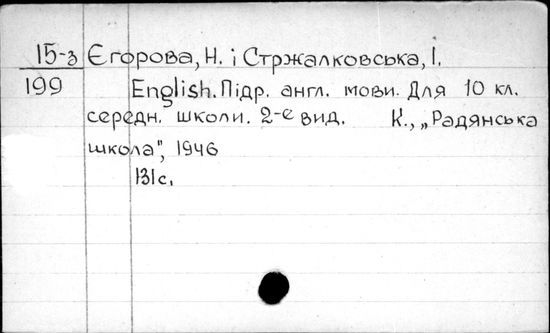 15-з Єгорова, Н. і Стржалковська, І.
199 English. Підр. англ. мови. Для 10 кл.
середн. школи. 2-е вид. К., „Радянська
школа", 1946
131с.